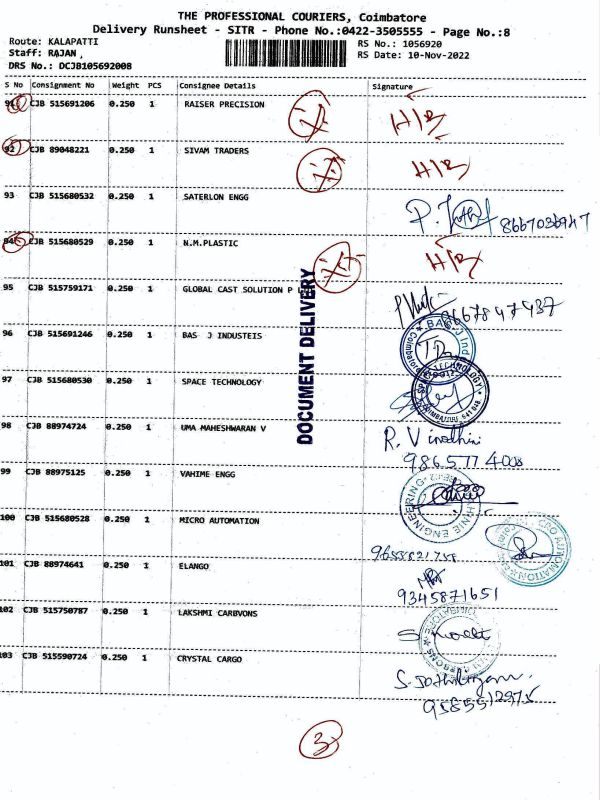 THE PROFESSIONAL COURIERS, Coimbatore
Delivery Runsheet - SITR - Phone No.:0422-3505555 - Page No.:8
Route: KALAPATTI RS No.: 1056920
Staff: RAJAN , RS Date: 10-Nov-2022
DRS No.: DCJB105692008
S No Consignment No Weight PCS Consignee Details Signature
91 CJB 515691206 0.250 1 RAISER PRECISION H/R
92 CJB 89048221 0.250 1 SIVAM TRADERS H/R
93 CJB 515680532 0.250 1 SATERLON ENGG 8667036947
94 CJB 515680529 0.250 1 N.M.PLASTIC H/R
95 CJB 515759171 0.250 1 GLOBAL CAST SOLUTION P 8667847437
96 CJB 515691246 0.250 1 BAS J INDUSTEIS
97 CJB 515680530 0.250 1 SPACE TECHNOLOGY
98 CJB 88974724 0.250 1 UMA MAHESHWARAN V R. Vinodhini
9865774008
99 CJB 88975125 0.250 1 VAHIME ENGG
100 CJB 515680528 0.250 1 MICRO AUTOMATION
101 CJB 88974641 0.250 1 ELANGO
9345871651
102 CJB 515750787 0.250 1 LAKSHMI CARBVONS
103 CJB 515590724 0.250 1 CRYSTAL CARGO
9585512975
DOCUMENT DELIVERY
3